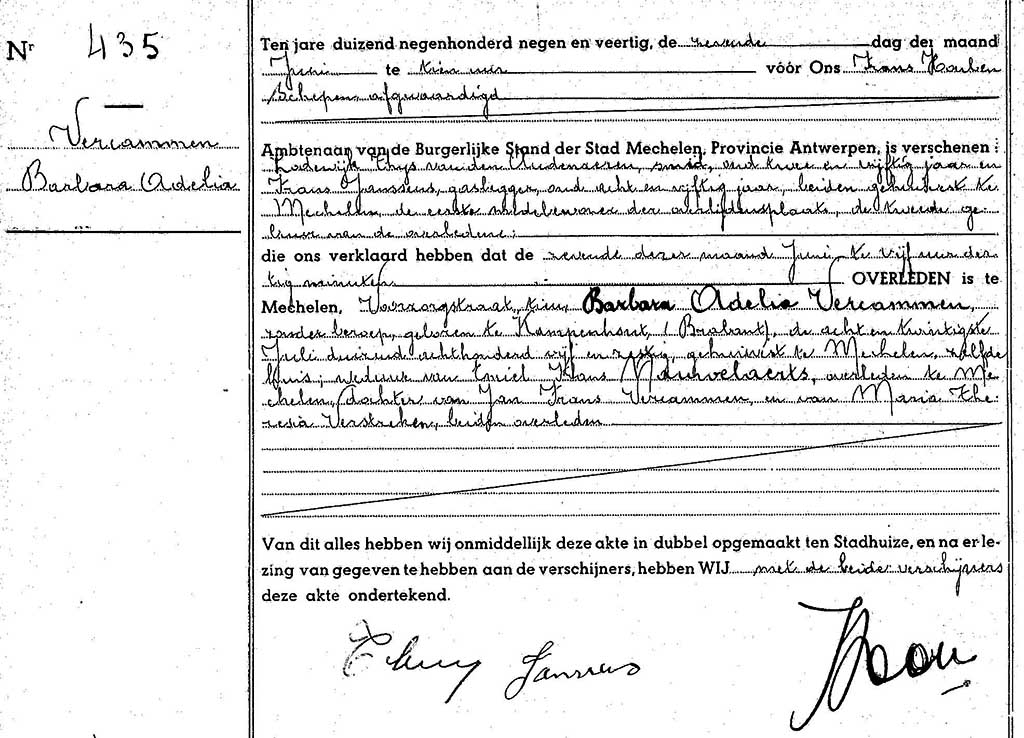 Nr 435
Vercammen
Barbara Adelia
Ten jare duizend negenhonderd negen en veertig, de zevende dag der maand
Juni te tien uur vóór Ons Frans
Schepen afgevaardigd
Ambtenaar van de Burgerlijke Stand der Stad Mechelen, Provincie Antwerpen, is verschenen :
Lodewijk Thys van den Audenaeren, smid, oud twee en vijftig jaar en
Frans Janssens, gaslegger, oud acht en vijftig jaar, beiden gehuisvest te
Mechelen, de eerste medebewoner der overlijdensplaats, de tweede ge-
buur van de overledene;
die ons verklaard hebben dat de zevende dezer maand Juni te vijf uur der
tig minuten OVERLEDEN is te
Mechelen, Voorzorgstraat, tien, Barbara Adelia Vercammen,
zonder beroep, geboren te Kampenhout, (Brabant), de acht en twintigste
Juli duizend achthonderd vijf en zestig, gehuisvest te Mechelen, zelfde
huis; weduwe van Emiel Frans Mauwelaerts, overleden te Me
chelen, dochter van Jan Frans Vercammen, en van Maria The-
resia Verstreken, beiden overleden
Van dit alles hebben wij onmiddellijk deze akte in dubbel opgemaakt ten Stadhuize, en na er le-
zing van gegeven te hebben aan de verschijners, hebben WIJ met de beide verschijners
deze akte ondertekend.
Janssens